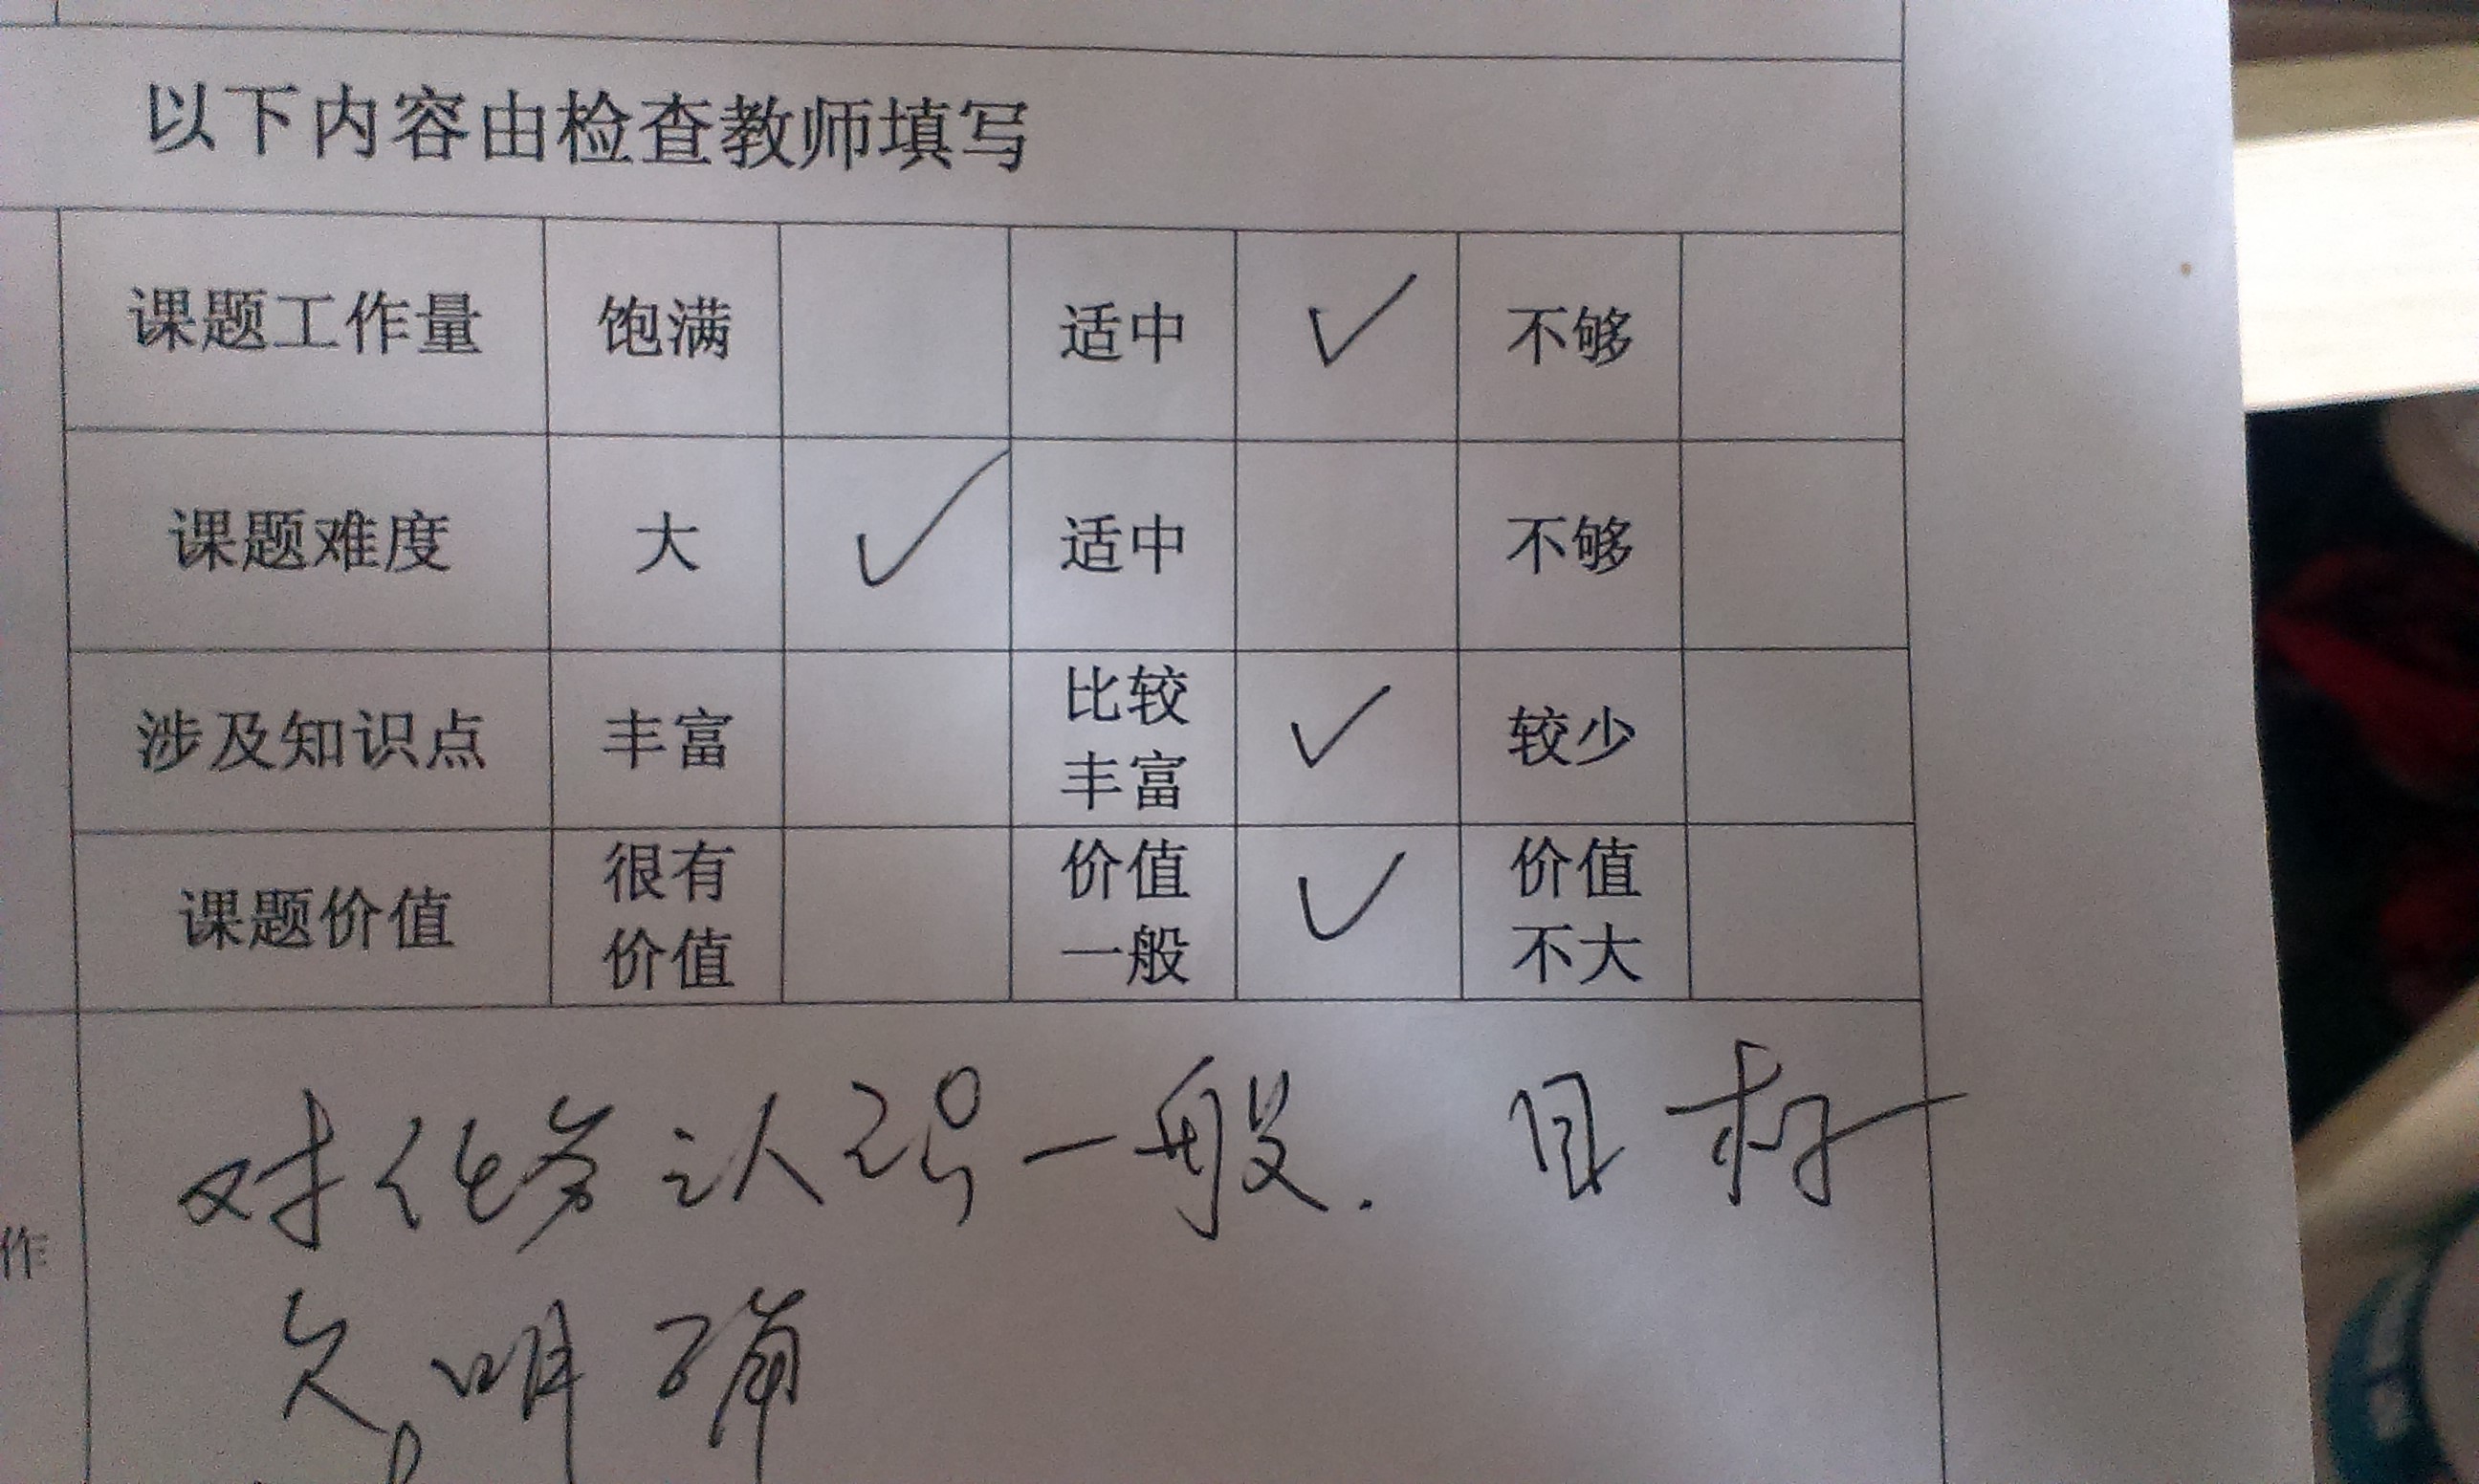 以下内容由检查教师填写
课题工作量 饱满 适中 ✓ 不够
课题难度 大 ✓ 适中 不够
涉及知识点 丰富 比较丰富 ✓ 较少
课题价值 很有价值 价值一般 ✓ 价值不大
作
对任务认识一般. 目标
欠明确